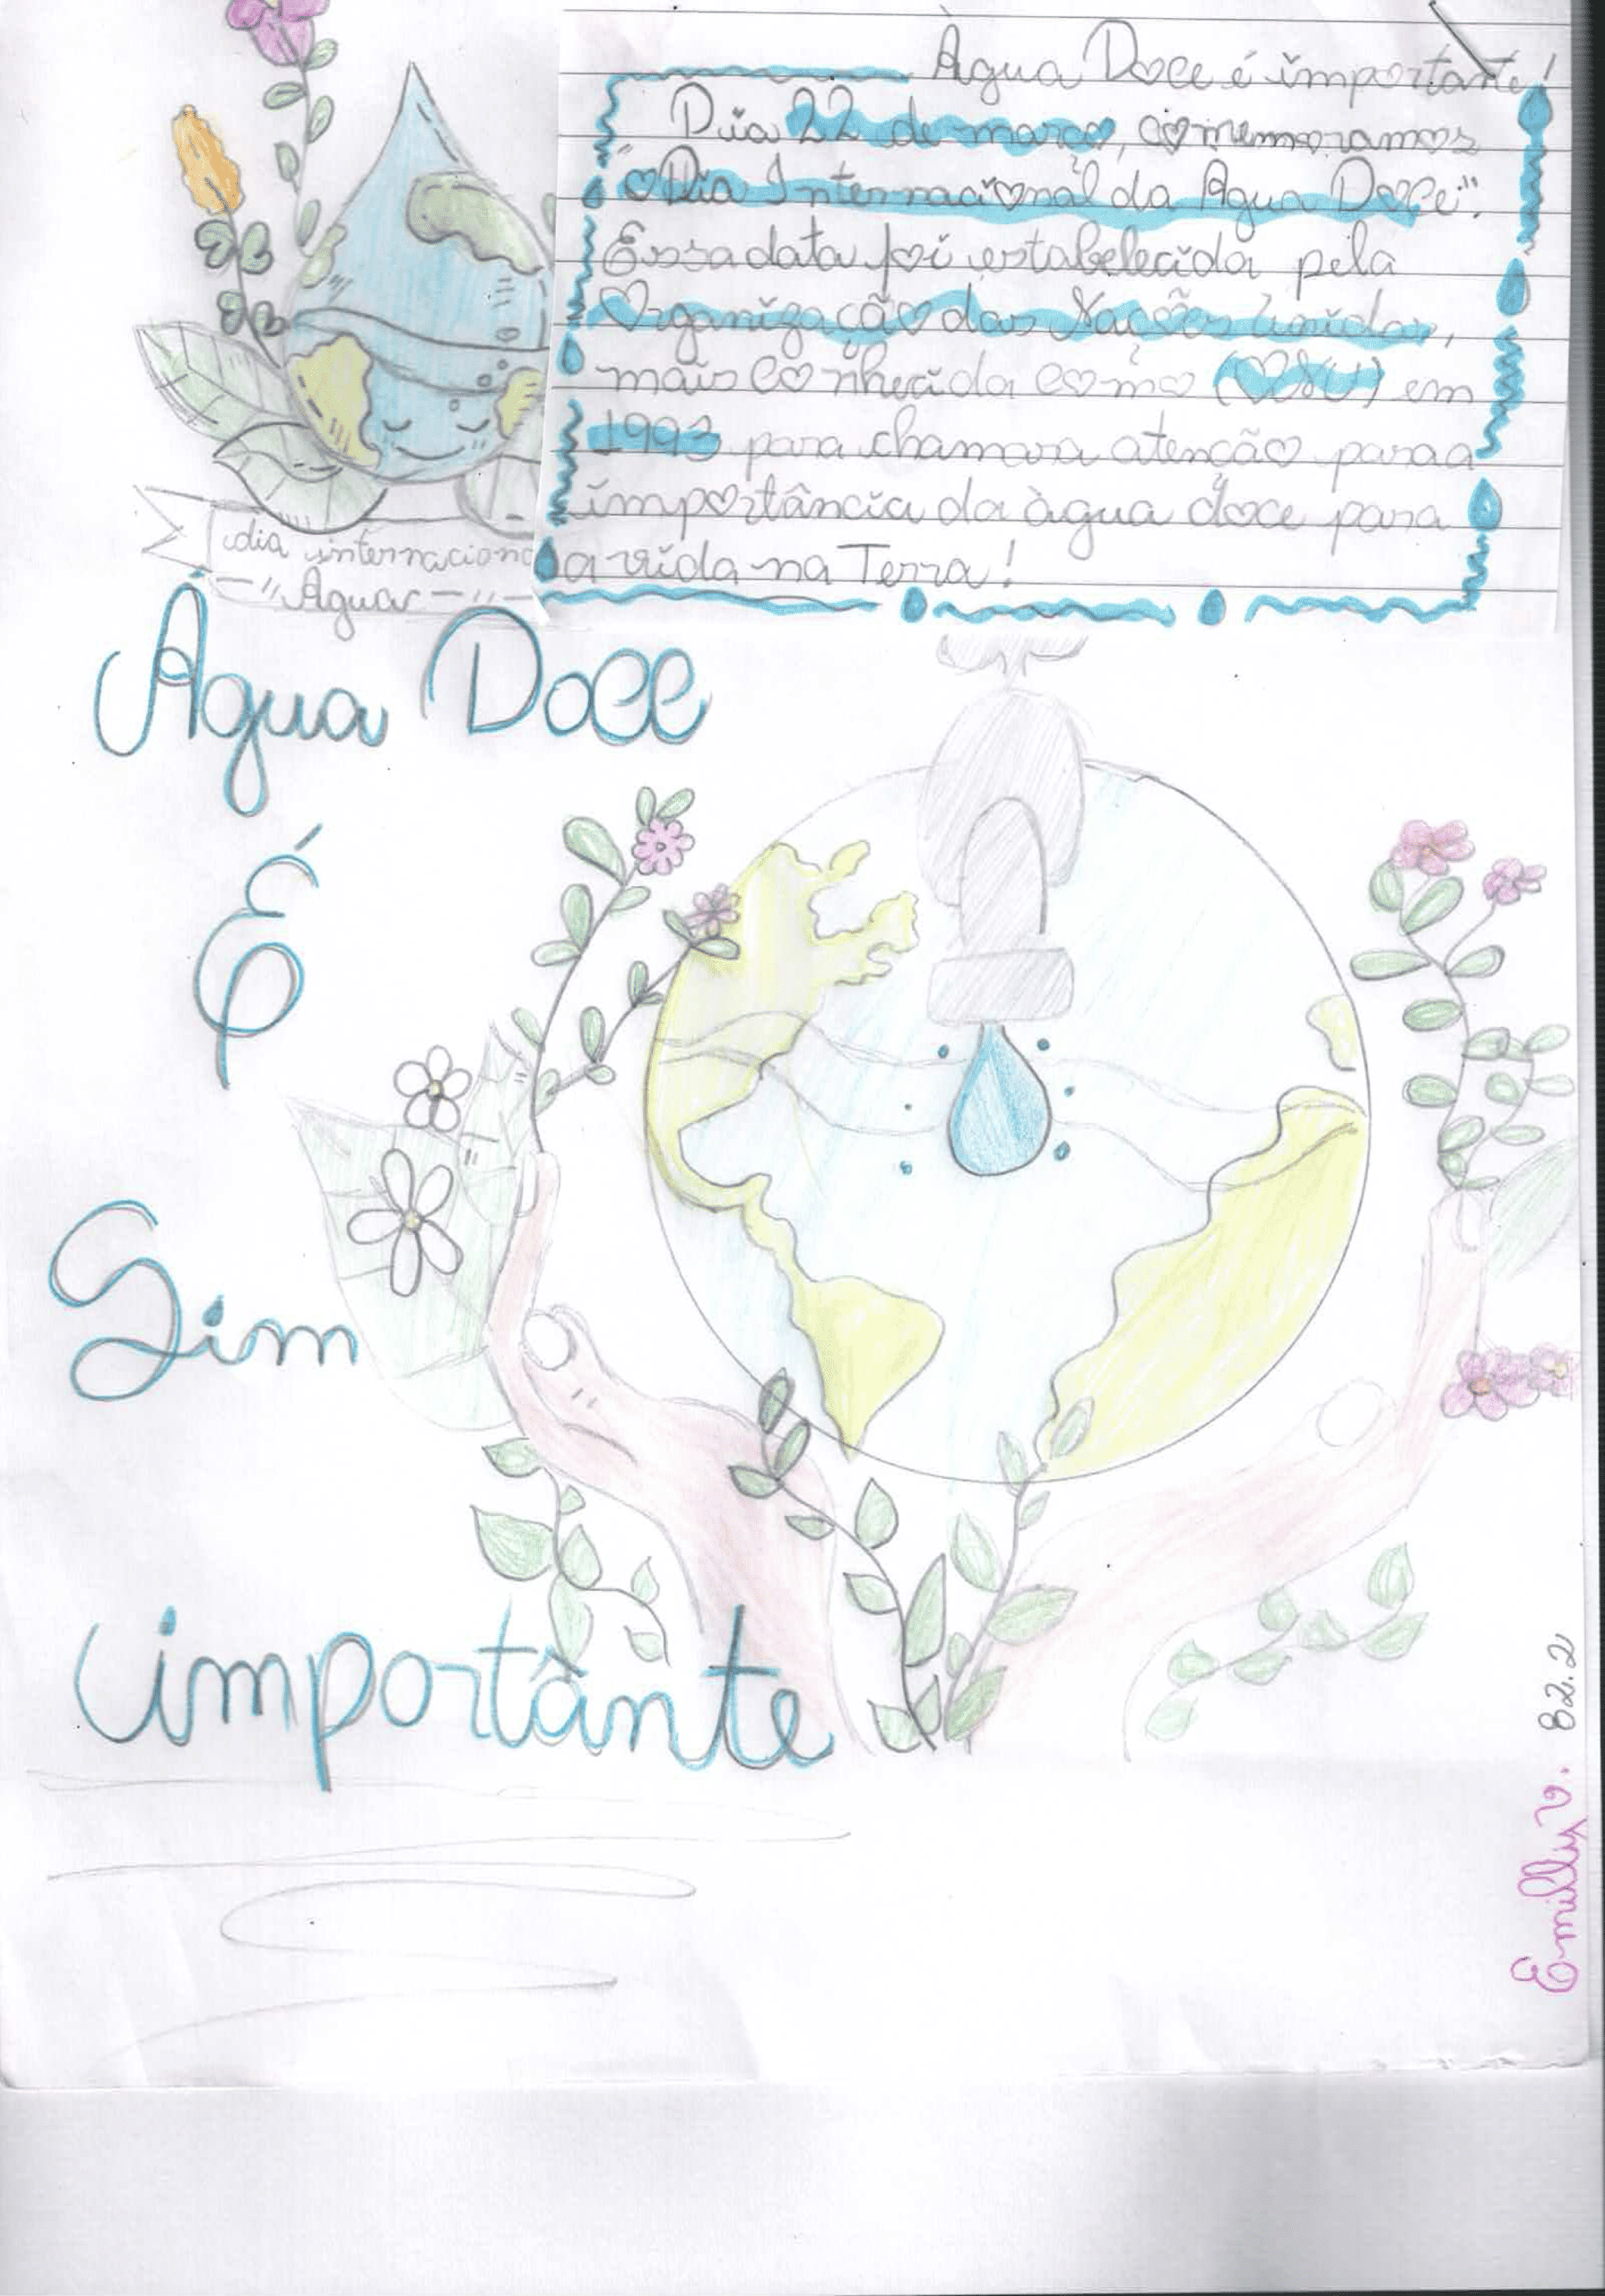 Àgua Doce é importante!
Dia 22 de março, comemoramos
"O Dia Internacional da Agua Doce".
Essa data foi estabelecida pela
Organização das Nações Unidas,
mais conhecida como (ONU) em
1993 para chamara atenção para a
importância da àgua doce para
a vida na Terra!
dia internaciona
—"Água—"—
Água Doce
É
Sim
importânte
Emilly V. 82.2